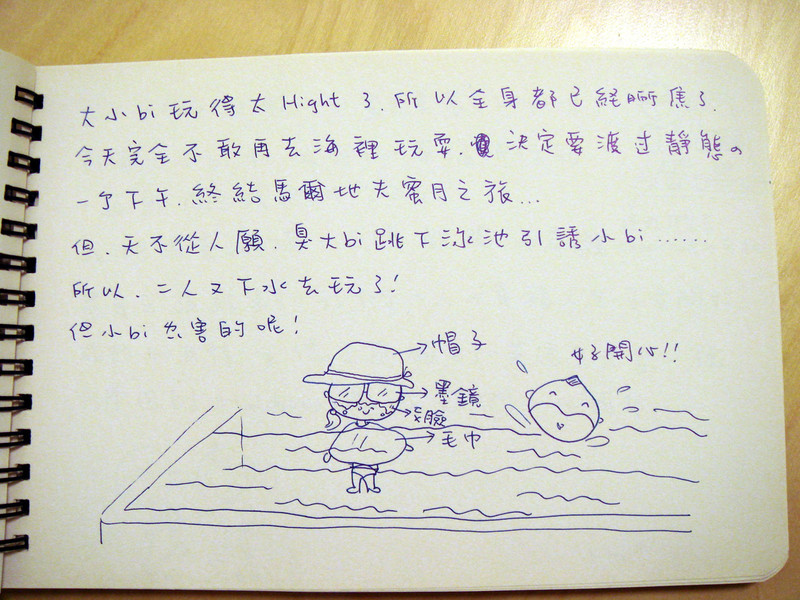 大小bi玩得太Hight了.所以全身都已経晒焦了.
今天完全不敢再去海裡玩耍.決定要渡过靜態の
一个下午.終結馬爾地夫蜜月之旅...
但.天不從人願.臭大bi跳下泳池引誘小bi......
所以.二人又下水去玩了!
但小bi厉害的呢!
帽子
好開心!!
墨鏡
臉
毛巾